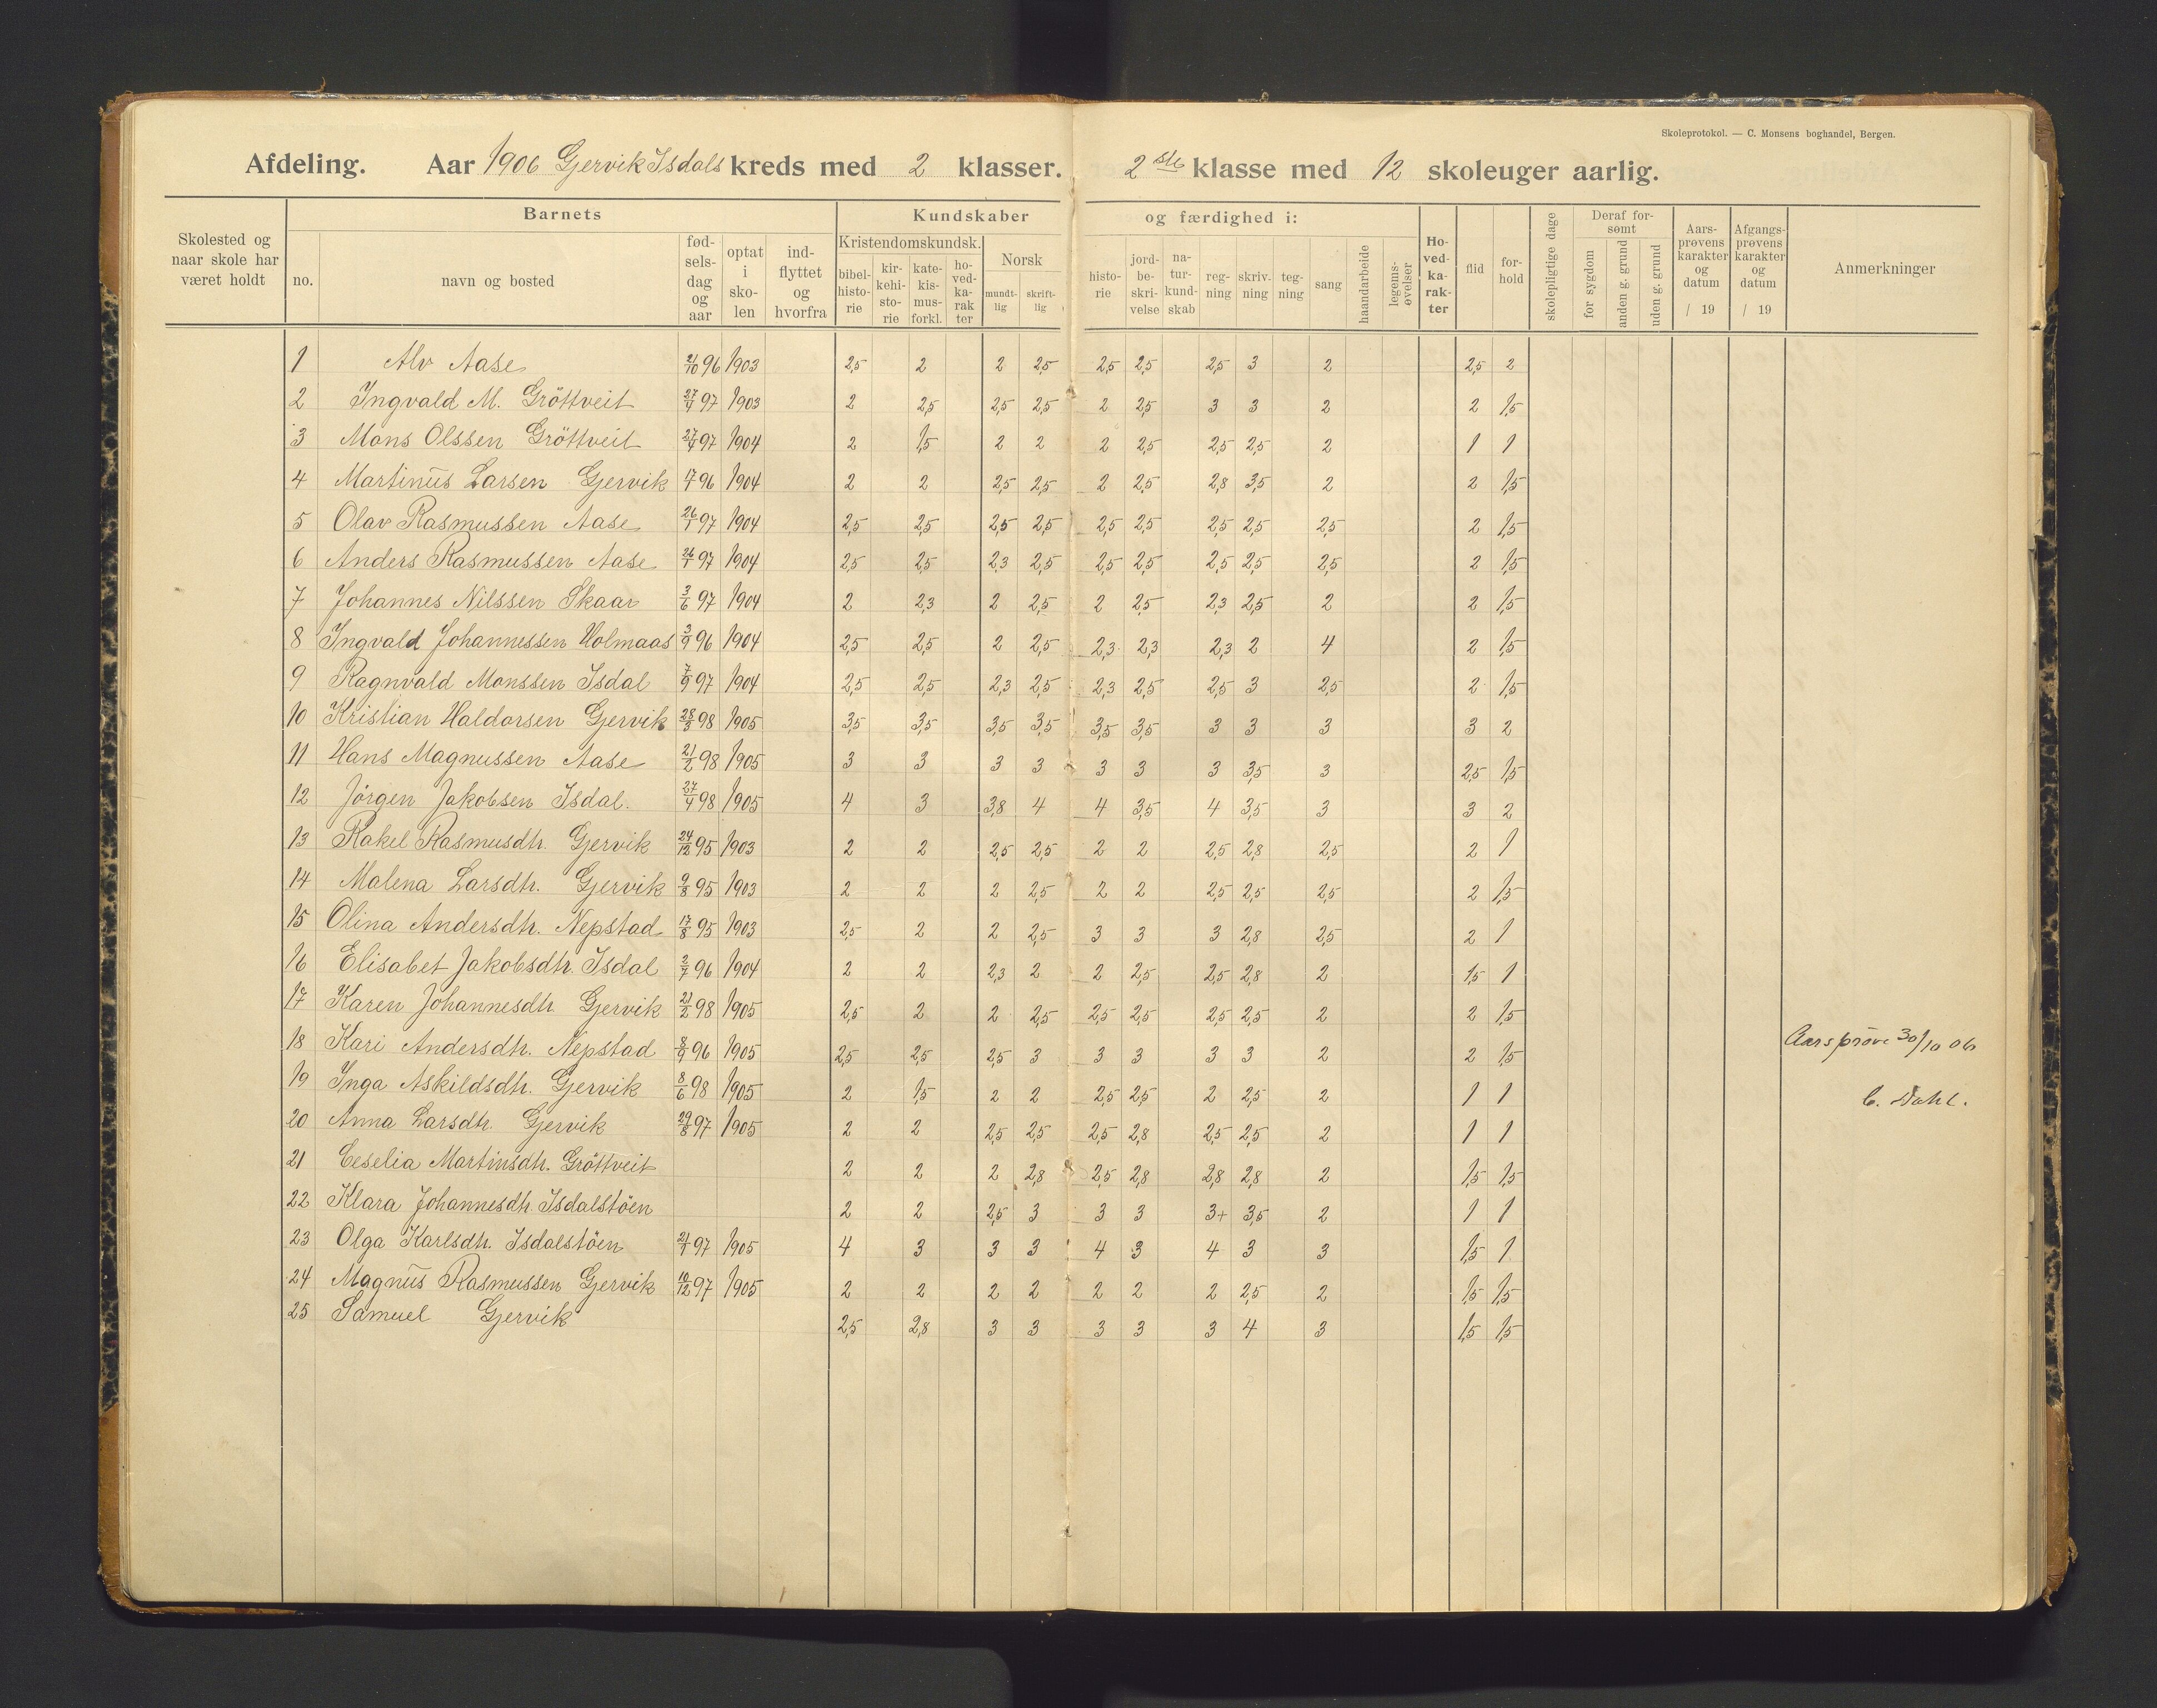 Skoleprotokol. — C. Monsens boghandel, Bergen.
Afdeling. Aar 1906 Gjervik Isdals kreds med 2 klasser. 2 ste klasse med 12 skoleuger aarlig.
Skolested og naar skole har været holdt
Barnets
no. navn og bosted fødselsdag og aar optat i skolen indflyttet og hvorfra
Kundskaber og færdighed i:
Kristendomskundsk. bibelhistorie kirkehistorie katekismus forkl. hovedkarakter
Norsk mundtlig skriftlig
historie jordbeskrivelse naturkundskab regning skrivning tegning sang haandarbeide legemsøvelser
Hovedkarakter flid forhold skolepligtige dage
Deraf forsømt for sygdom anden g. grund uden g. grund
Aarsprøvens karakter og datum / 19
Afgangsprøvens karakter og datum / 19
Anmerkninger
1 Alv Aase 21/10 96 1903 2,5 2 2 2,5 2,5 2,5 2,5 3 2 2,5 2
2 Ingvald M. Gröttveit 27/4 97 1903 2 2,5 2,5 2,5 2 2,5 3 3 2 2 1,5
3 Mons Olssen Gröttveit 27/4 97 1904 2 1,5 2 2 2 2,5 2,5 2,5 2 1 1
4 Martinus Larsen Gjervik 17/1 96 1904 2 2 2,5 2,5 2 2,5 2,8 3,5 2 2 1,5
5 Olav Rasmussen Aase 26/1 97 1904 2,5 2,5 2,5 2,5 2,5 2,5 2,5 2,5 2,5 2 1,5
6 Anders Rasmussen Aase 26/1 97 1904 2,5 2,5 2,3 2,5 2,5 2,5 2,5 2,5 2,5 2 1,5
7 Johannes Nilssen Skaar 3/6 97 1904 2 2,3 2 2,5 2 2,5 2,3 2,5 2 2 1,5
8 Ingvald Johannessen Holmaas 3/9 96 1904 2,5 2,5 2 2,5 2,3 2,3 2,3 2 4 2 1,5
9 Ragnvald Monssen Isdal 7/9 97 1904 2,5 2,5 2,3 2,5 2,3 2,5 2,5 3 2,5 2 1,5
10 Kristian Haldorsen Gjervik 28/3 98 1905 3,5 3,5 3,5 3,5 3,5 3,5 3 3 3 3 2
11 Hans Magnussen Aase 21/2 98 1905 3 3 3 3 3 3 3 3,5 3 2,5 1,5
12 Jörgen Jakobsen Isdal. 27/4 98 1905 4 3 3,8 4 4 3,5 4 3,5 3 3 2
13 Rakel Rasmusdtr. Gjervik 24/12 95 1903 2 2 2,5 2,5 2 2 2,5 2,8 2,5 2 1
14 Malena Larsdtr. Gjervik 9/8 95 1903 2 2 2 2,5 2 2 2,5 2,5 2,5 2 1,5
15 Olina Andersdtr. Nepstad 17/8 95 1903 2,5 2 2 2,5 3 3 3 2,8 2,5 2 1
16 Elisabet Jakobsdtr. Isdal 2/7 96 1904 2 2 2,3 2 2 2,5 2,5 2,8 2 1,5 1
17 Karen Johannesdtr. Gjervik 21/2 98 1905 2,5 2 2 2,5 2,5 2,5 2,5 2,5 2 2 1,5
18 Kari Andersdtr. Nepstad 8/9 96 1905 2,5 2,5 2,5 3 3 3 3 3 2 2 1,5 Aarsprøve 30/10 06
19 Inga Askildsdtr. Gjervik 8/6 98 1905 2 1,5 2 2 2,5 2,5 2 2,5 2 1 1 C. Dahl.
20 Anna Larsdtr. Gjervik 29/8 97 1905 2 2 2,5 2,5 2,5 2,8 2,5 2,5 2 1 1
21 Ceselia Martinsdtr. Gröttveit 2 2 2 2,8 2,5 2,8 2,8 2,8 2 1,5 1,5
22 Klara Johannesdtr. Isdalstöen 2 2 2,5 3 3 3 3+ 3,5 2 1 1
23 Olga Karlsdtr. Isdalstöen 21/1 97 1905 4 3 3 3 4 3 4 3 3 1,5 1
24 Magnus Rasmussen Gjervik 10/12 97 1905 2 2 2 2 2 2 2 2,5 2 1,5 1,5
25 Samuel Gjervik 2,5 2,8 3 3 3 3 3 4 3 1,5 1,5